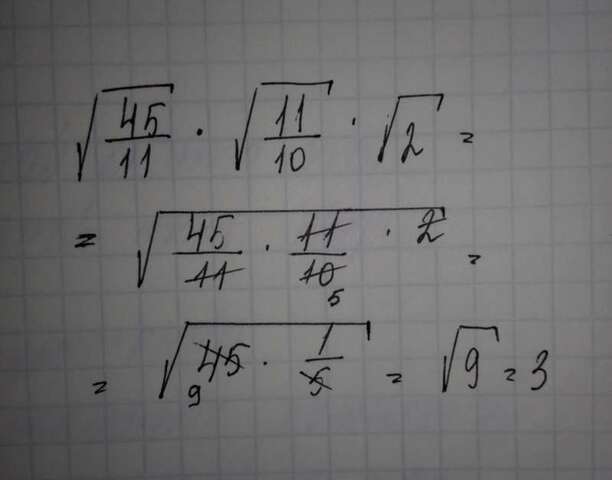 √(45/11) · √(11/10) · √2 =
= √(45/11 · 11/10 5 · 2) =
= √(45 9 · 1/5) = √9 = 3